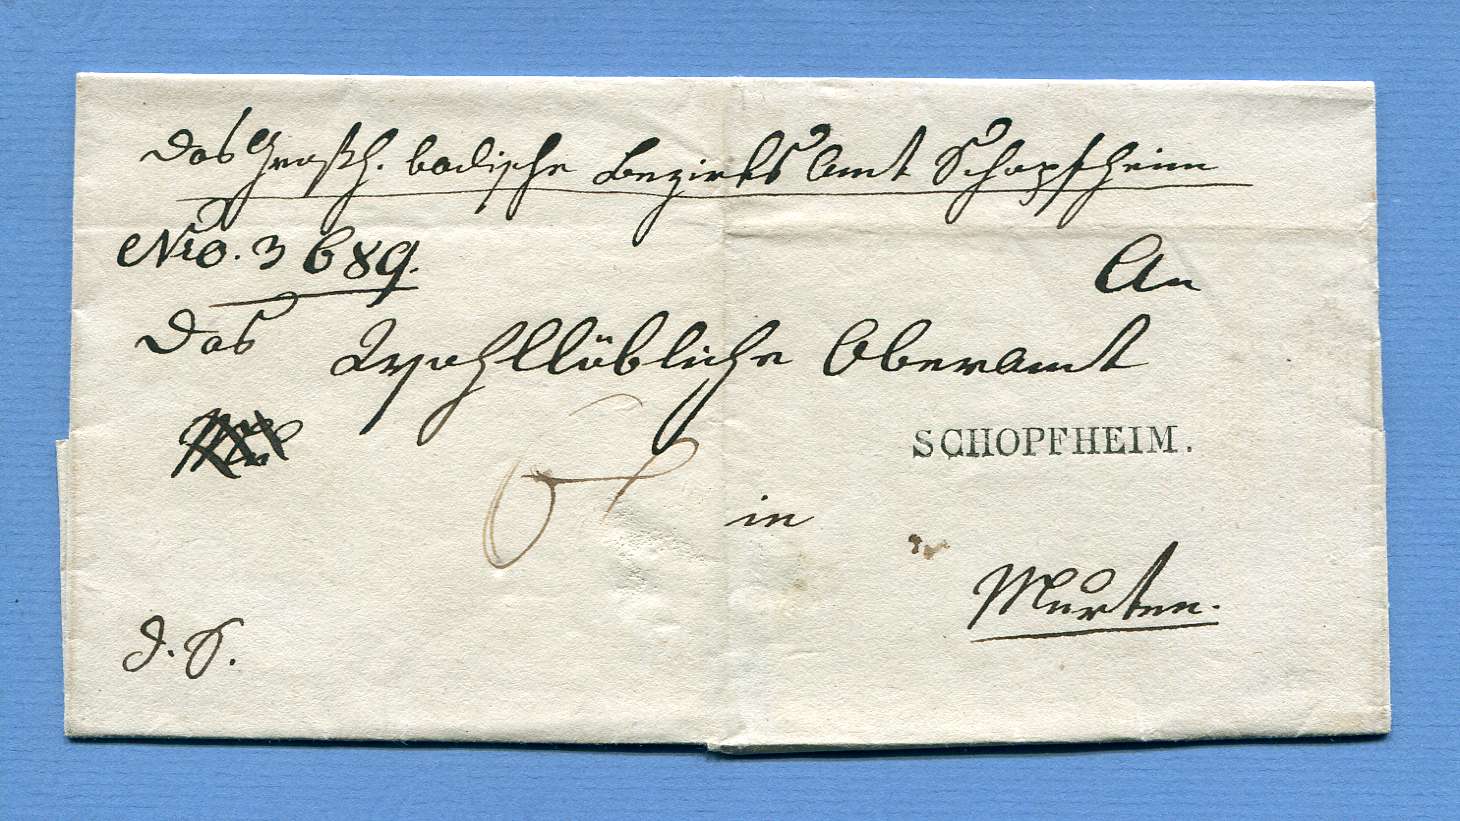 Das Großh. badische Bezirks Amt Schopfheim
Nro. 3689.
An
Das Wohllöbliche Oberamt
SCHOPFHEIM.
in
Murten.
D. S.